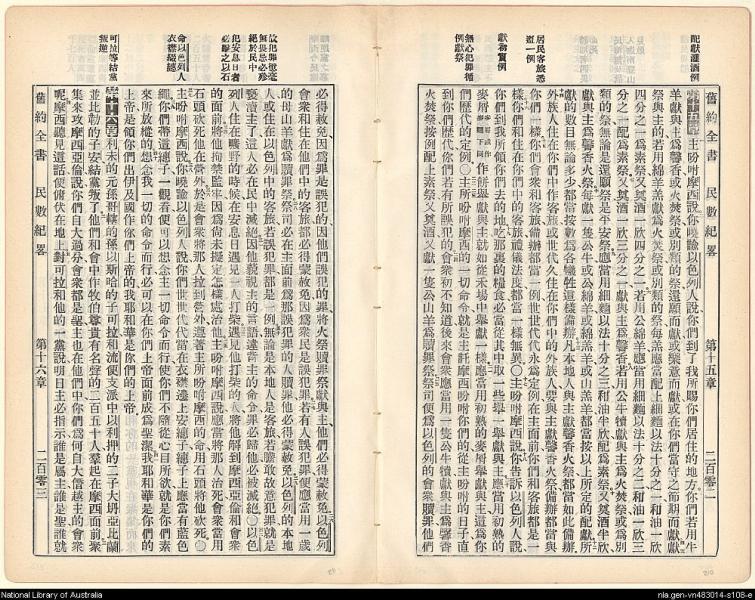 舊約全書 民數紀畧 第十五章 二百零二
配獻灌酒例
居民客旅悉遵一例
獻初實例
無心犯罪循例獻祭
第十五章 主吩咐摩西說你曉諭以色列人說你們到了我所賜你們居住的地方你們若用牛
羊獻與主爲馨香或火焚祭或別類的祭還願而獻或樂意而獻或在你們當守之節期而獻
祭與主的若用綿羊羔獻爲火焚祭或別類的祭每羔應當配上細麵以法十分之一和油一欣
四分之一爲素祭又奠酒一欣四分之一若用公綿羊應當用細麵以法十分之二和油一欣三
分之一配爲素祭又奠酒一欣三分之一獻與主爲馨香若用公牛犢獻與主爲火焚祭或爲別
類的祭無論是還願祭是平安祭應當用細麵以法十分之三和油半欣配爲素祭又奠酒半欣
獻與主爲馨香火祭每獻一隻公牛或公綿羊或綿羔羊或山羔羊都當按以上所定的配獻所
獻的數目無論多少都當按數爲各犧牲這樣備辦凡本地人與主獻馨香火祭都當如此備辦
外族人住在你們中作客旅或世代久住在你們中的外族人要與主獻馨香火祭備辦都當與
你們一樣你們會衆和客旅備辦都當一同一例世世代代永爲定例在主面前你們和客旅都是一
樣你們和住在你們中的客旅禮儀法度都當一樣無異〇主吩咐摩西說你告訴以色列人說
你們到我所領你們去的地吃那裏的糧食必當從其中取一些舉一舉獻與主應當用初熟的
麥屑作餅舉獻與主就如從禾場中舉獻一樣應當用初熟的麥屑舉獻與主這爲你
們歷代的定例〇主所吩咐摩西的一切命令就是主託摩西吩咐你們的從主吩咐的日子直
到你們歷代你們若有所誤犯的會衆初不知道後來會衆應當用一隻公牛犢獻與主爲馨香
火焚祭按例配上素祭又奠酒又獻一隻公山羊爲贖罪祭祭司便爲以色列的會衆贖罪他們
故犯罪褻瀆無畏忌必殄絕於民中
犯安息日者必擊之以石
命以色列人衣襟綴繐
可拉等結黨叛逆
必得赦免因爲罪是誤犯的因他們誤犯的罪將火祭贖罪祭獻與主他們必得蒙赦免以色列
會衆和住在他們中的客旅都必得蒙赦免因爲衆民是誤犯罪若有人誤犯罪便當用一歲
的母山羊獻爲贖罪祭祭司必在主面前爲那誤犯罪的人贖罪他必得蒙赦免以色列的本地
人或住在以色列中的客旅若誤犯罪都是一例無論是本地人是客旅若膽敢故意犯罪就是
褻瀆主了這人必在民中滅絕因他藐視主的言語違背主的命令罪必歸他必被滅絕〇以色
列人住在曠野的時候在安息日遇見一人打柴遇見他打柴的人將他帶到摩西亞倫和會衆
的面前將他拘禁監牢因爲尙未擬定怎樣處治他主吩咐摩西說應當將那人治死會衆當用
石頭砍死他在營外於是會衆將那人拉到營外遵著主所吩咐摩西的命用石頭將他砍死〇
主吩咐摩西說你曉諭以色列人說你們世世代代當在衣襟邊上安繐子繐子上應當有藍色
繩你們帶這繐子一觀看便可以想念主一切命令而行使你們不隨從心目所欲就是你們素
來所放縱的想念我一切的命令而行必可以在你們上帝面前成爲聖潔我耶和華是你們的
上帝是領你們出伊及國作你們上帝的我耶和華是你們的上帝
第十六章 利未的元孫哥轄的孫以斯哈的子可拉和流便支派中以利押的二子大坍亞比蘭
並比勒的子安結黨叛了他們和會中作牧伯尊貴有名聲的二百五十人羣起在摩西面前聚
集來攻摩西亞倫說你們自大過分會衆都是聖主也在他們中你們爲何自大僭越主的會衆
呢摩西聽見這話便俯伏在地上對可拉和他的一黨說明日主必指示誰是屬主誰是聖誰就
舊約全書 民數紀畧 第十六章 二百零三
National Library of Australia
nla.gen-vn483014-s108-e